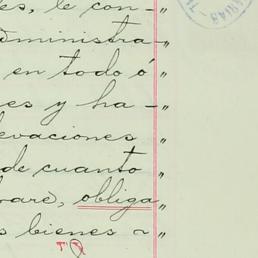 es, le con-"
dministra-"
en todo ó "
es y ha-"
evaciones "
de cuanto "
varé, obliga "
s bienes ~ "